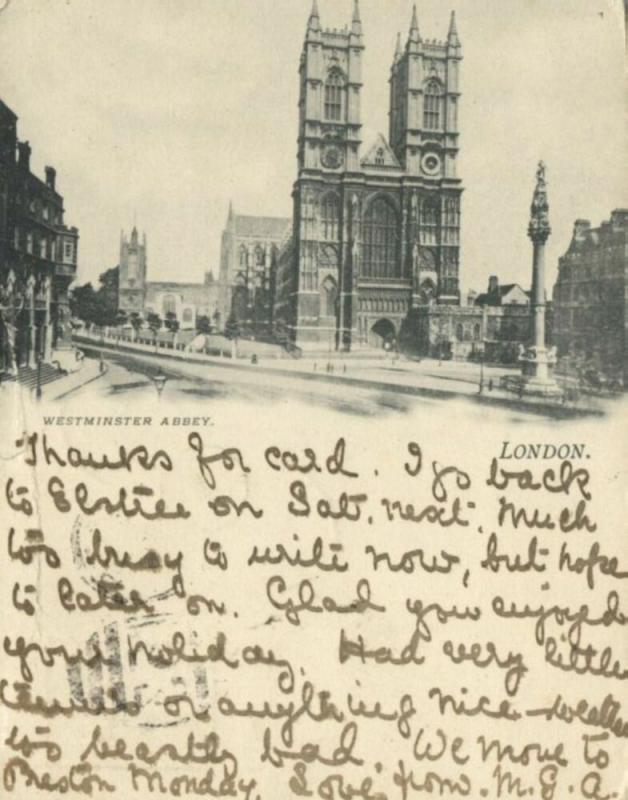 WESTMINSTER ABBEY.
LONDON.
Thanks for card. I go back
to Elstree on Sat. next. Much
too busy to write now, but hope
to later on. Glad you enjoyed
your holiday. Had very little
tennis or anything nice - weather
too beastly bad. We move to
Preston Monday. Love from. M.G.A.